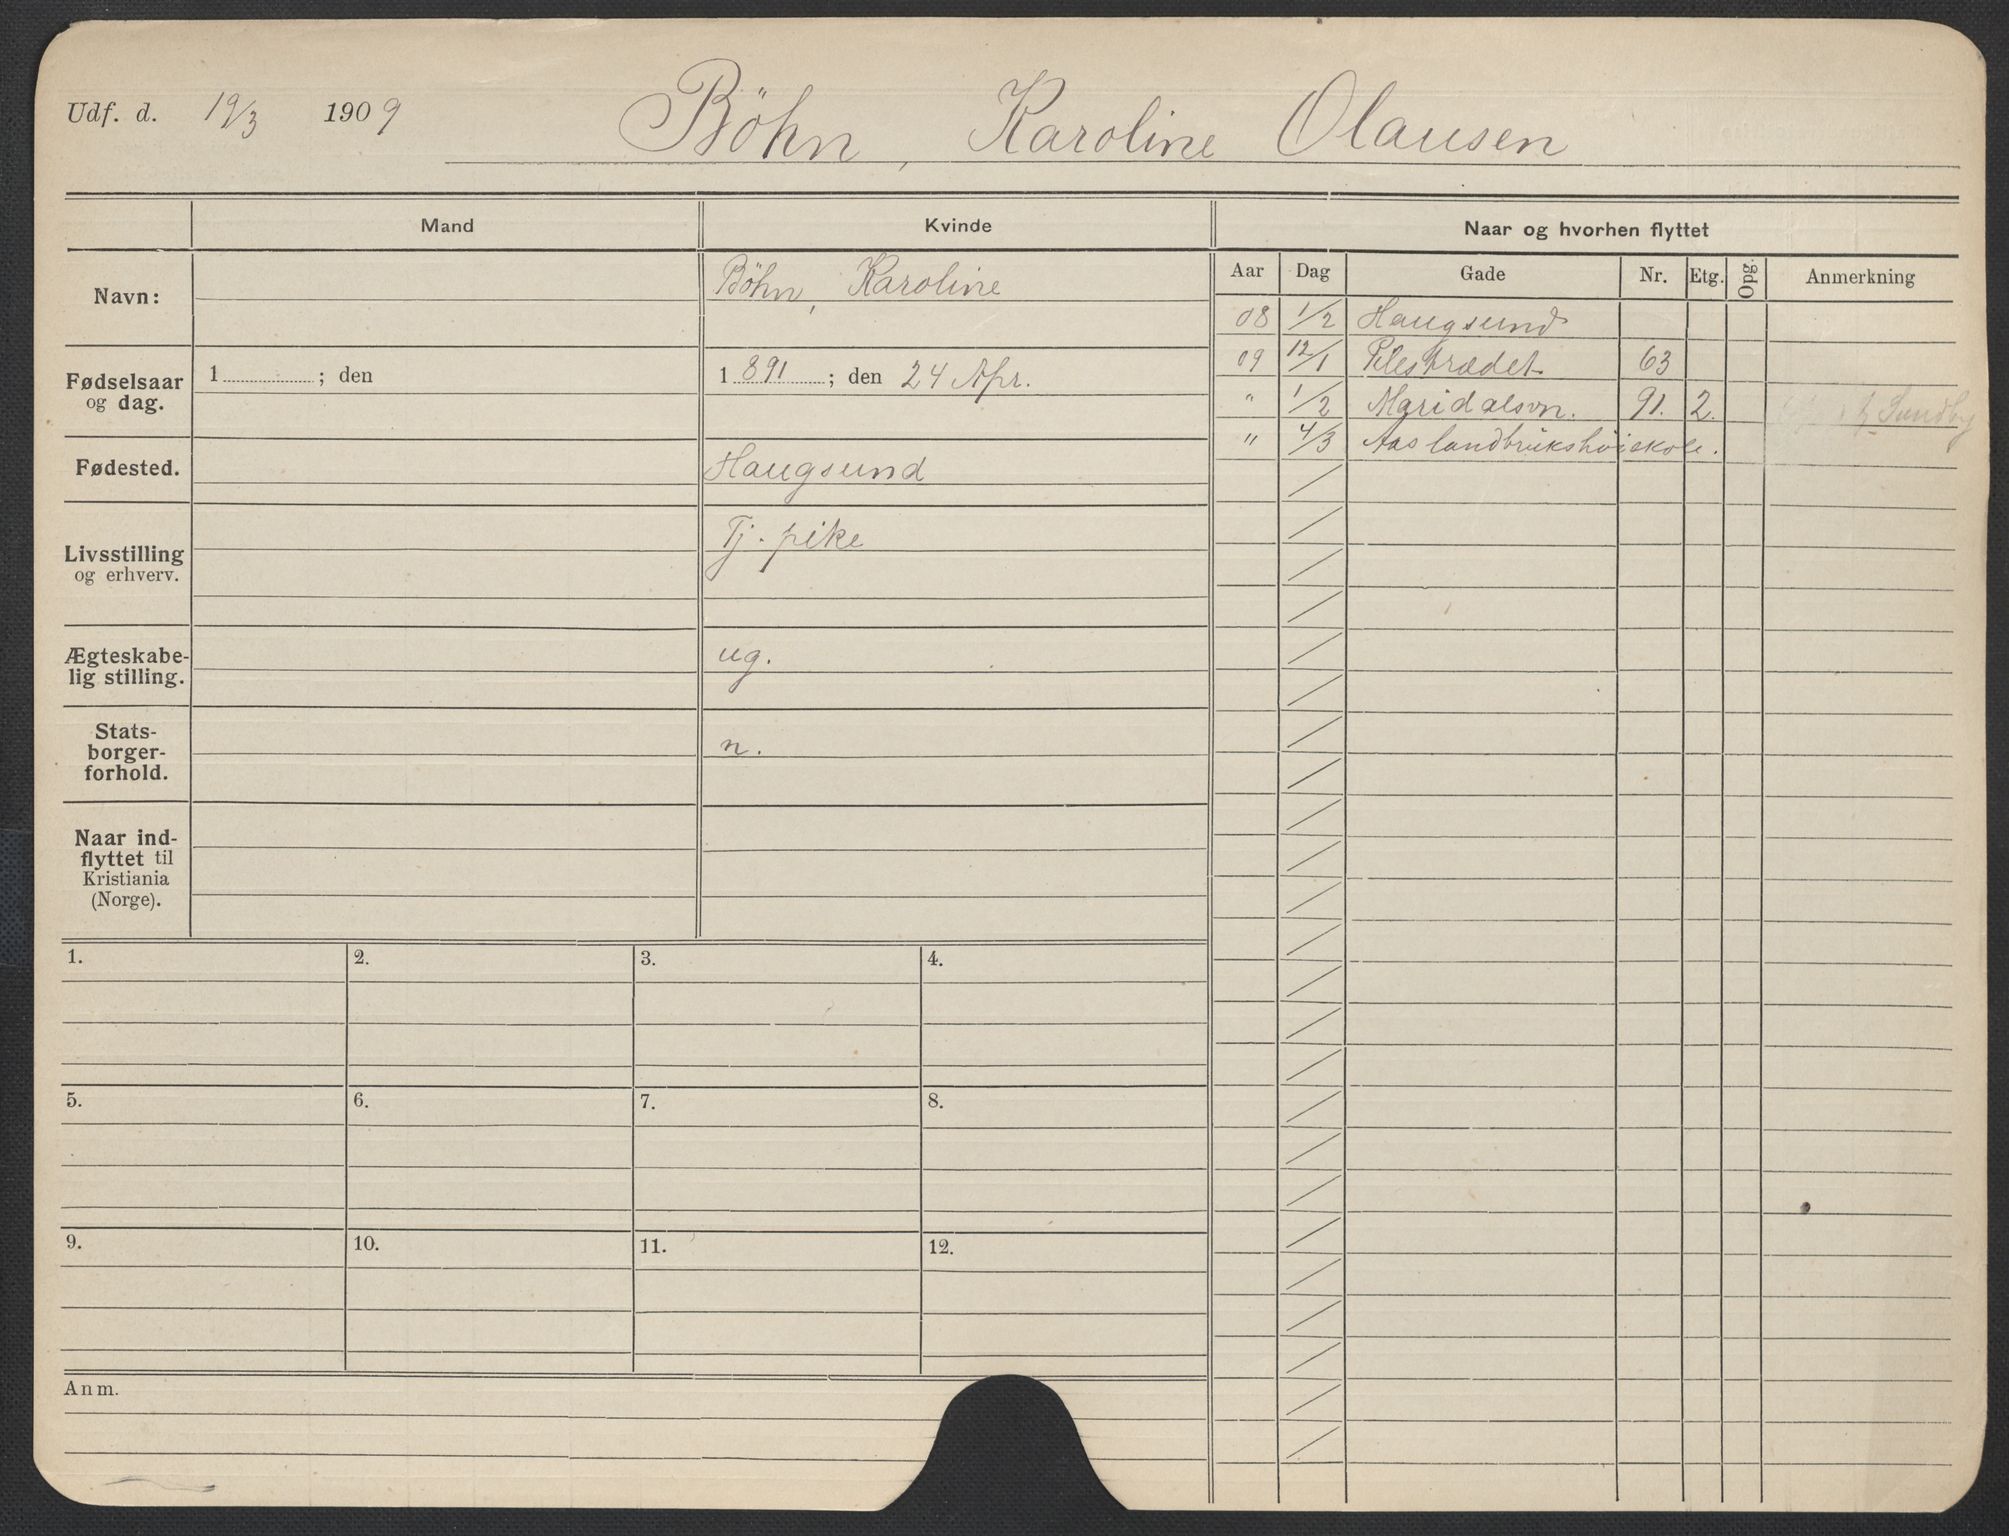 Udf. d. 19/3 1909 Böhn, Karoline Olausen
Mand Kvinde Naar og hvorhen flyttet
Aar Dag Gade Nr. Etg. Opg. Anmerkning
Navn: Böhn, Karoline
Fødselsaar og dag. 1 ; den 1 891 ; den 24 Apr.
Fødested. Haugsund
Livsstilling og erhverv. Tj. pike
Ægteskabe-
lig stilling. ug.
Stats-
borger-
forhold. n.
Naar ind-
flyttet til
Kristiania
(Norge).
08 1/2 Haugsund
09 12/1 Pilestrædet 63
" 1/2 Maridalsvn. 91. 2. Sundby
" 4/3 Aas landbrukshöiskole.
1. 2. 3. 4.
5. 6. 7. 8.
9. 10. 11. 12.
Anm.